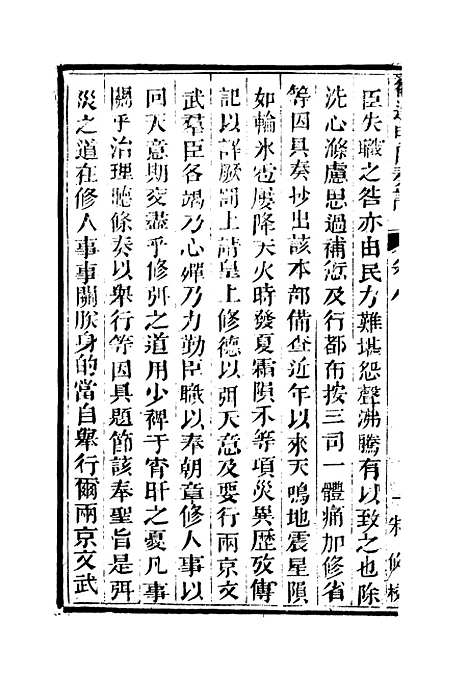 臣失職之咎亦由民力難堪怨聲沸騰有以致之也除
洗心滌慮思過補愆及行都布按三司一體痛加修省
等因具奏抄出該本部備查近年以來天鳴地震星隕
如輪氷雹屢降天火時發夏霜隕不等項災異歷攷傳
記以詳厥咎上請皇上修德以弭天意及要行兩京文
武羣臣各竭乃心殫乃力勤臣職以奉朝章修人事以
回天意期交盡乎修弭之道用少裨于宵旰之憂凡事
關乎治理聽條奏以舉行等因具題節該奉聖旨是弭
災之道在修人事事關朕身的當自舉行爾兩京文武